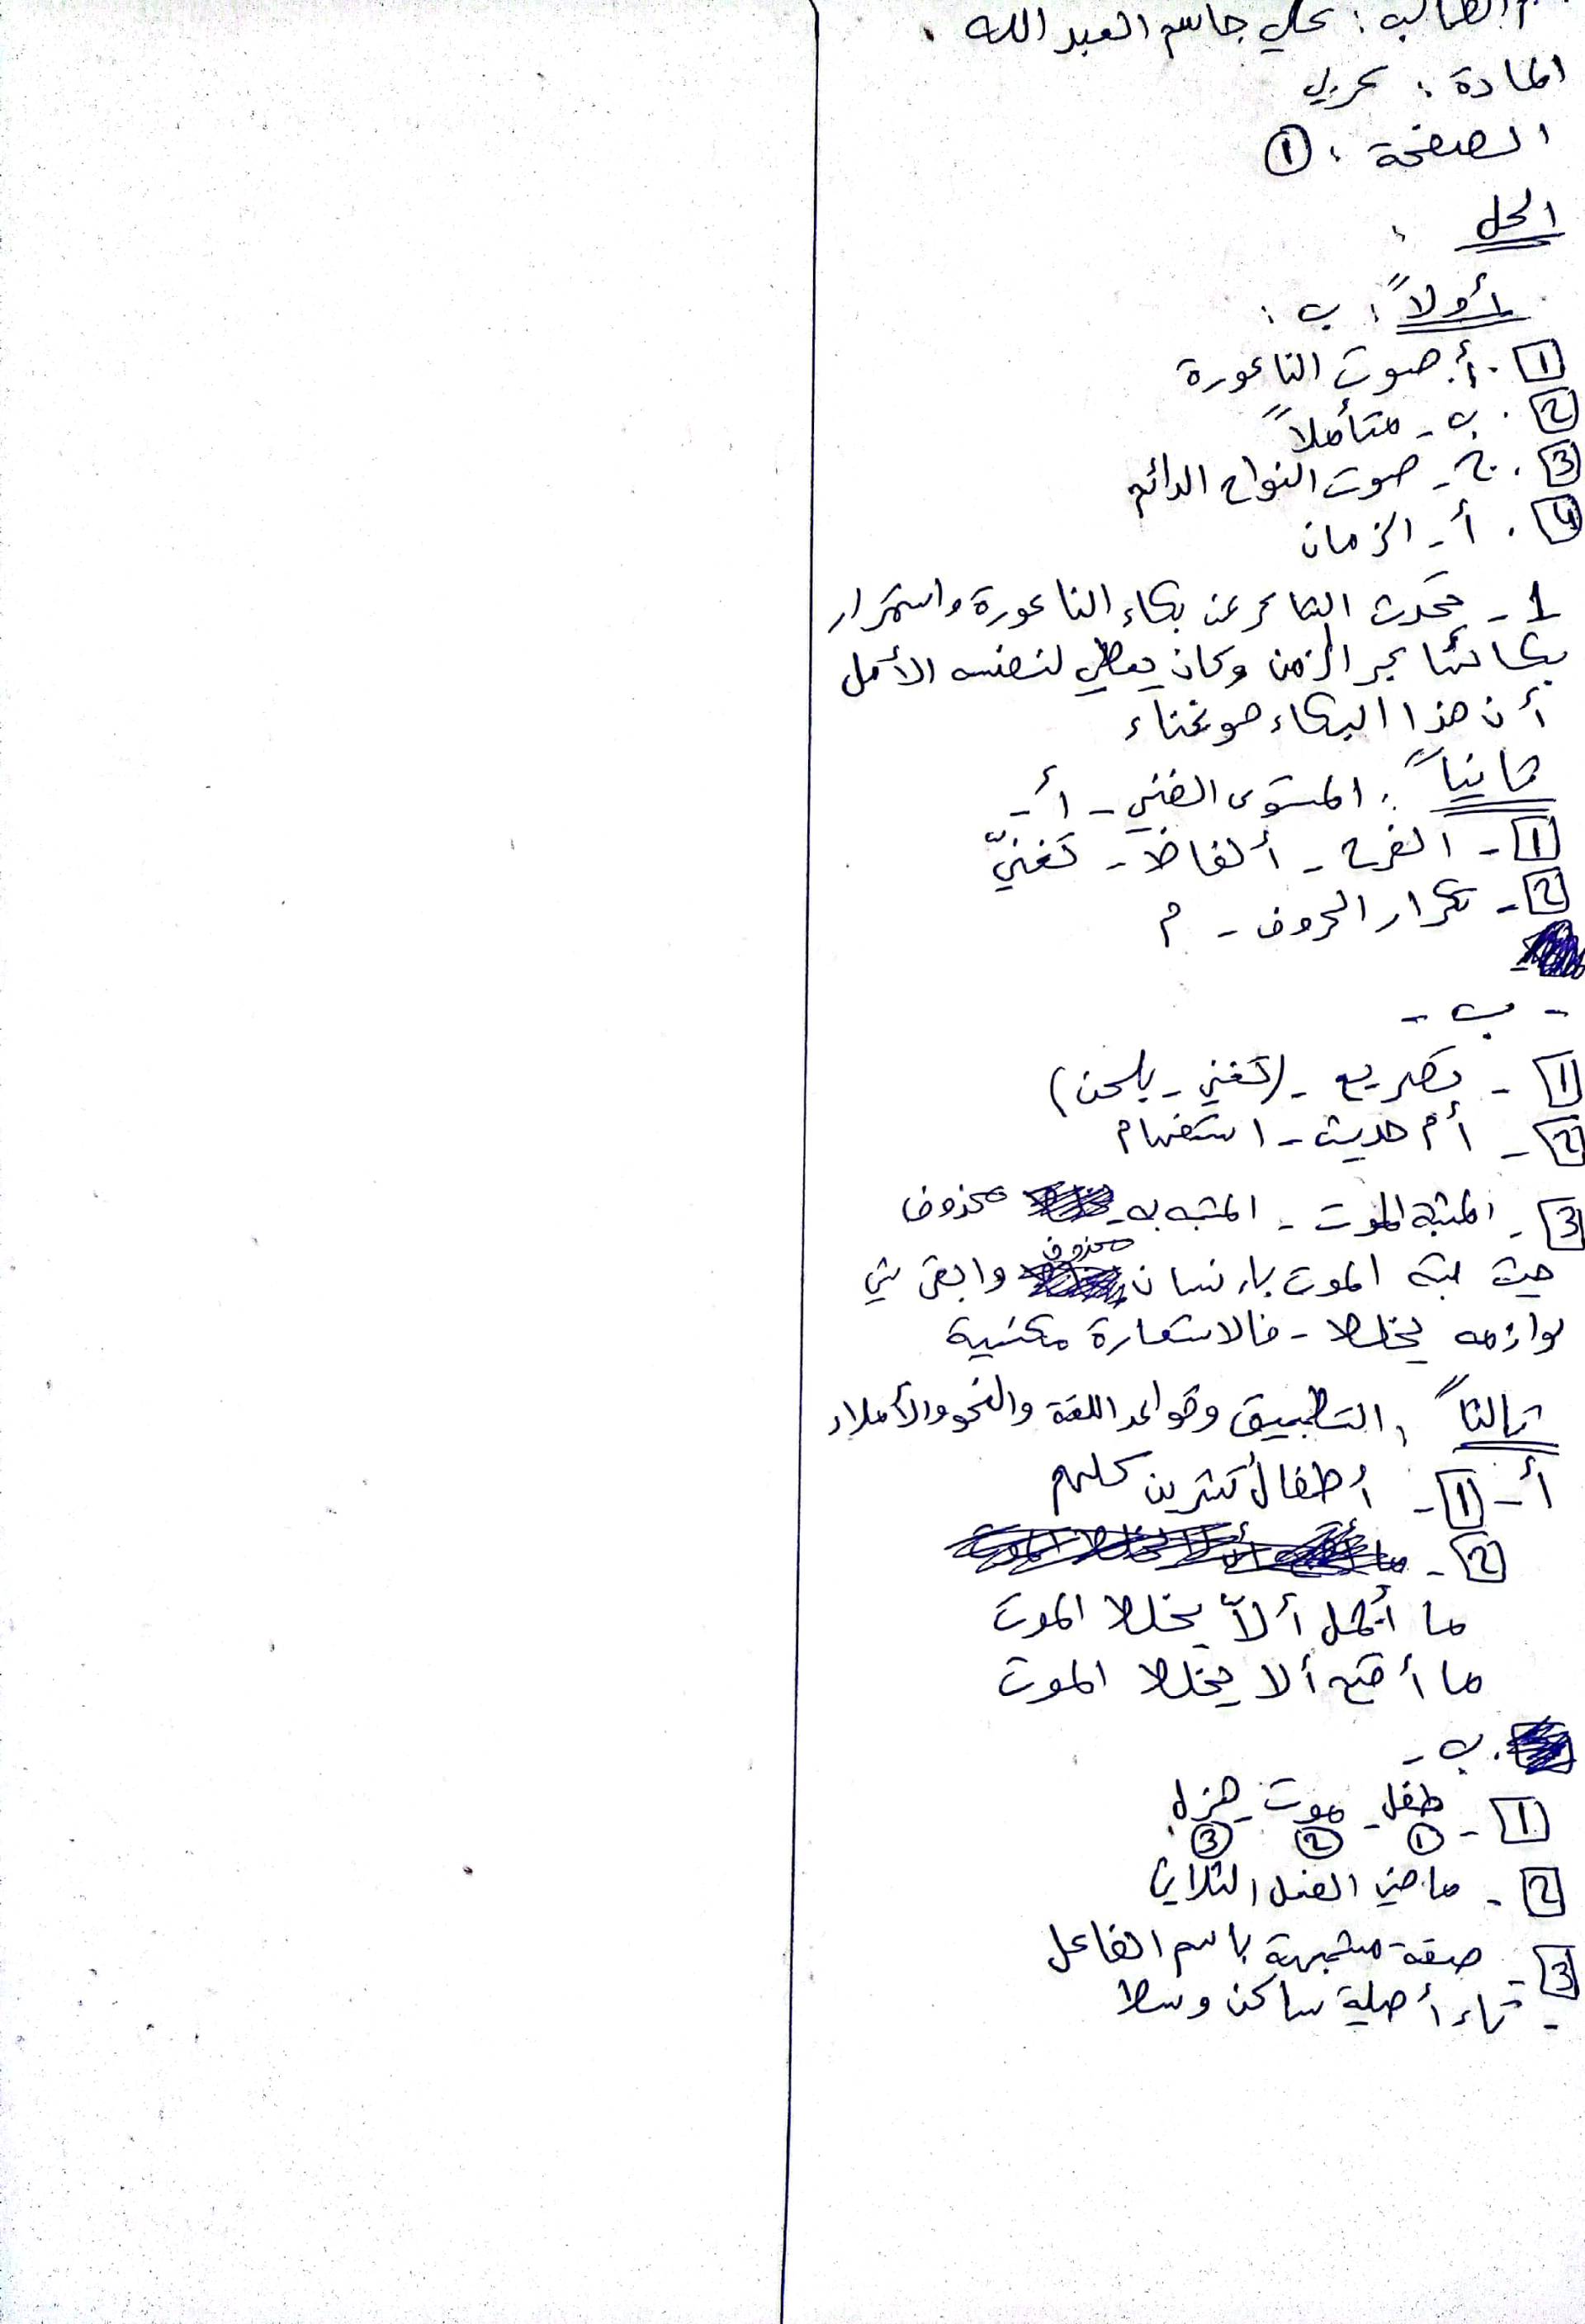 الطالب : علي جاسم العبد الله .
المادة : عربي
الصفحة : ①
الحل :
أولاً : ب :
1 . أ. صوت الناعورة
2 . ب - متأملاً
3 . ج - صوت النواح الدائم
4 . أ - الزمان
1 - تحدث الشاعر عن بكاء الناعورة واستمرار
بكائها عبر الزمن وكان يعطي لنفسه الأمل
أن هذا البكاء هو غناء
ثانياً : المستوى الفني - أ -
1 - الفرح - ألفاظ - تغنيّ
2 - تكرار الحروف - م
- ب -
1 - تصريع - (تغني - بلحن)
2 - أم حديث - استفهام
3 - المشبه الموت - المشبه به - محذوف
حيث شبه الموت بإنسان محذوف وابقى شي
لوازمه يخلط - فالاستعارة مكنية
ثالثاً : التطبيق وقواعد اللغة والنحو والأملاء
أ - 1 - أطفال كثيرين كلهم
2 -
ما أجمل ألاّ يخلط الموت
ما أقبح ألا يخلط الموت
ب -
1 - طفل - موت -
① ② ③
2 - ماضي الفعل الثلاثي
3 - صفة مشبهة باسم الفاعل
- تاء أصلية ساكن وسط